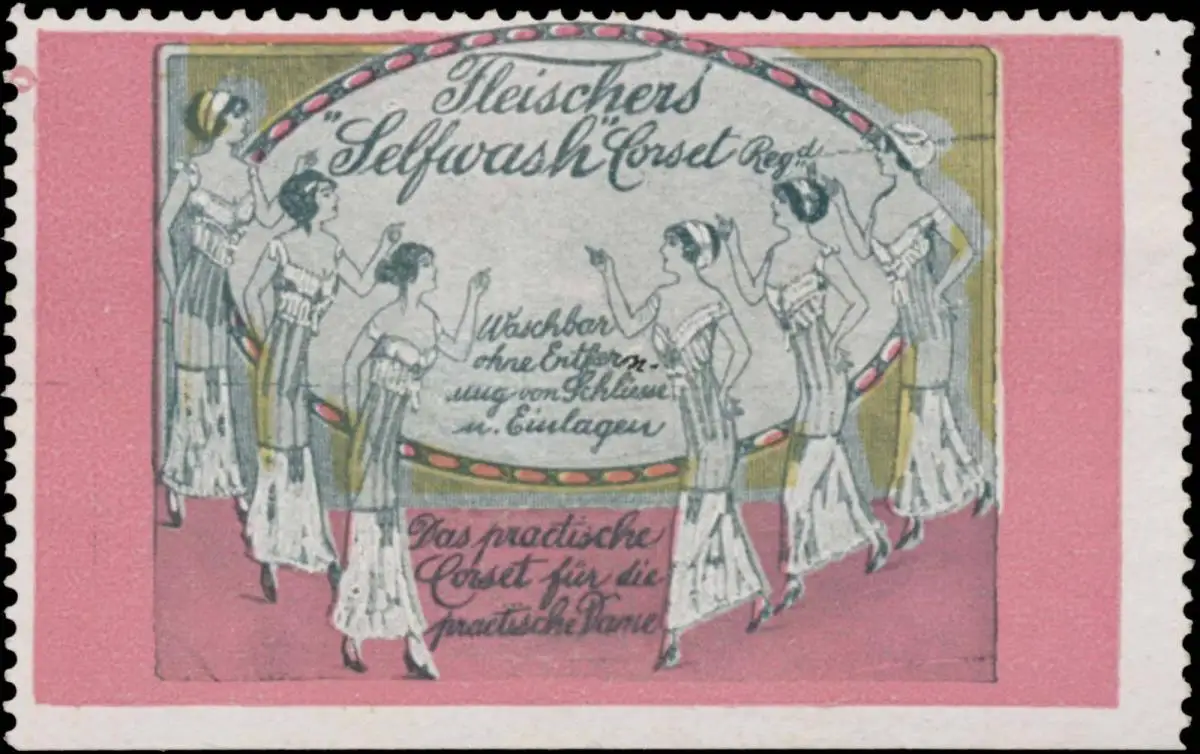 Fleischers
"Selfwash" Corset Reg'd
Waschbar
ohne Entfern-
ung von Schliesse
u. Einlagen
Das practische
Corset für die
practische Dame